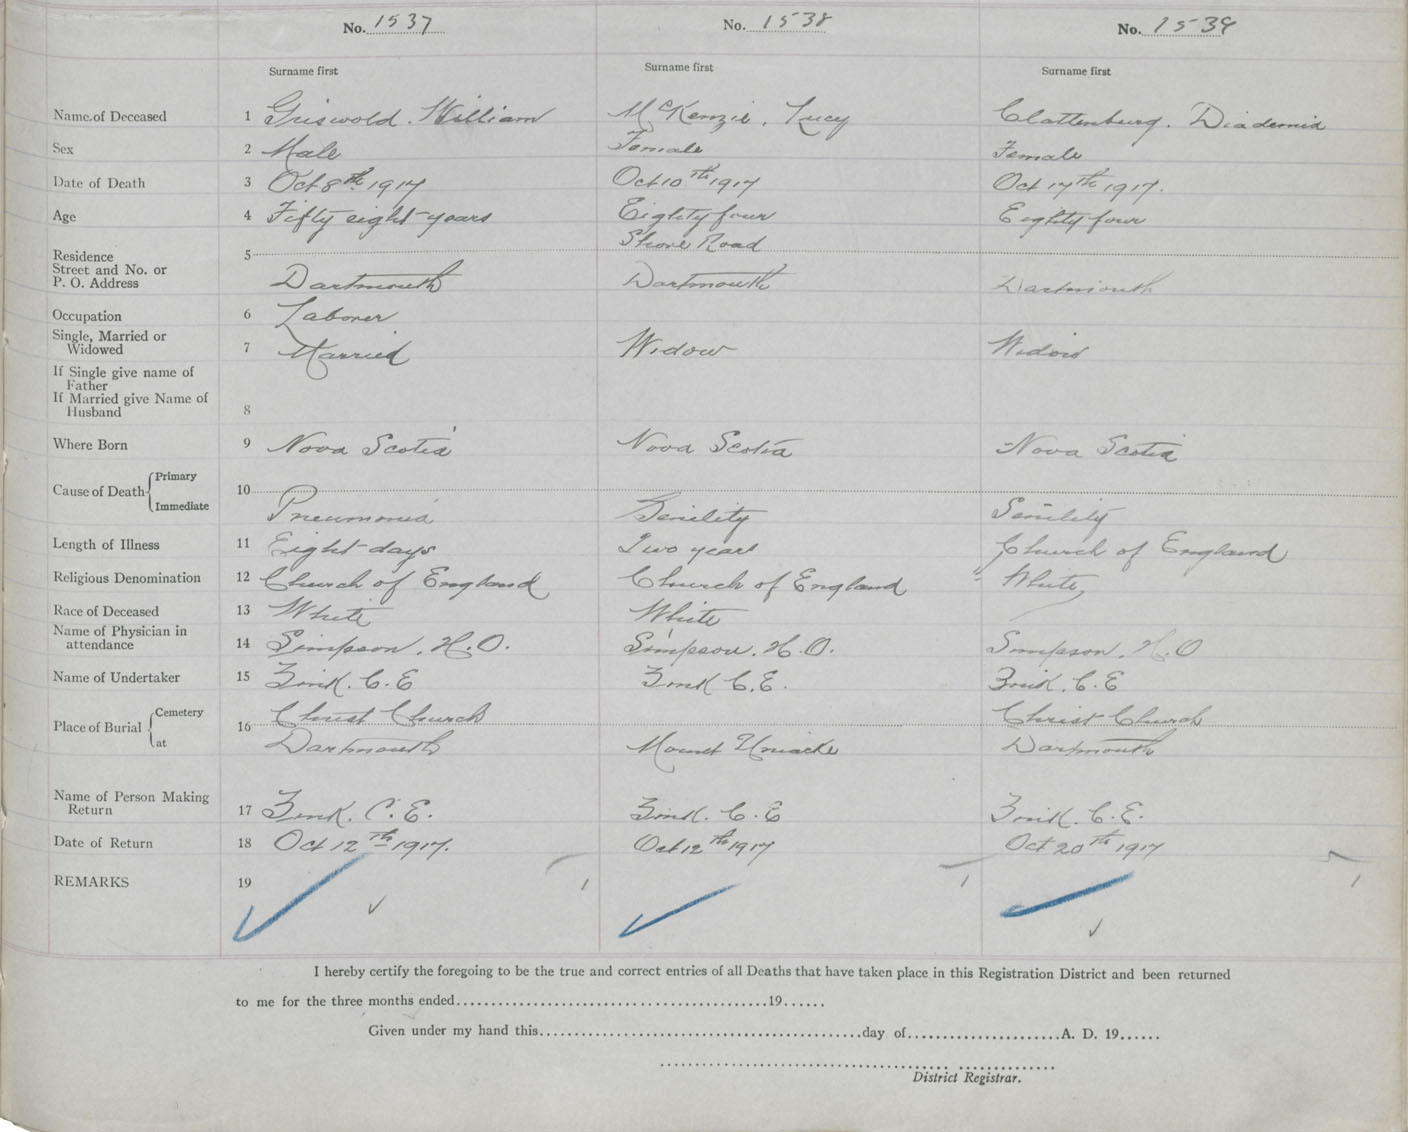 No. 1537 No. 1538 No. 1539
Surname first Surname first Surname first
Name of Deceased 1 Griswold. William McKenzie, Lucy Clattenburg. Diademia
Sex 2 Male Female Female
Date of Death 3 Oct 8th 1917 Oct 10th 1917 Oct 17th 1917.
Age 4 Fifty eight years Eighty four Eighty four
Residence 5 Shore Road
Street and No. or
P. O. Address Dartmouth Dartmouth Dartmouth
Occupation 6 Laborer
Single, Married or
Widowed 7 Married Widow Widow
If Single give name of
Father
If Married give Name of
Husband 8
Where Born 9 Nova Scotia Nova Scotia Nova Scotia
Cause of Death Primary 10
Immediate Pneumonia Senility Senility
Length of Illness 11 Eight days Two years Church of England
Religious Denomination 12 Church of England Church of England White
Race of Deceased 13 White White
Name of Physician in
attendance 14 Simpson. H.O. Simpson. H.O. Simpson. H.O
Name of Undertaker 15 Zink. C.E Zink C.E. Zink. C.E
Place of Burial Cemetery 16 Christ Church Christ Church
at Dartmouth Mount Uniacke Dartmouth
Name of Person Making
Return 17 Zink. C.E. Zink. C.E Zink. C.E.
Date of Return 18 Oct 12th 1917. Oct 12th 1917 Oct 20th 1917
REMARKS 19 1 1 1
I hereby certify the foregoing to be the true and correct entries of all Deaths that have taken place in this Registration District and been returned
to me for the three months ended........................................19......
Given under my hand this........................................day of......................A. D. 19......
District Registrar.